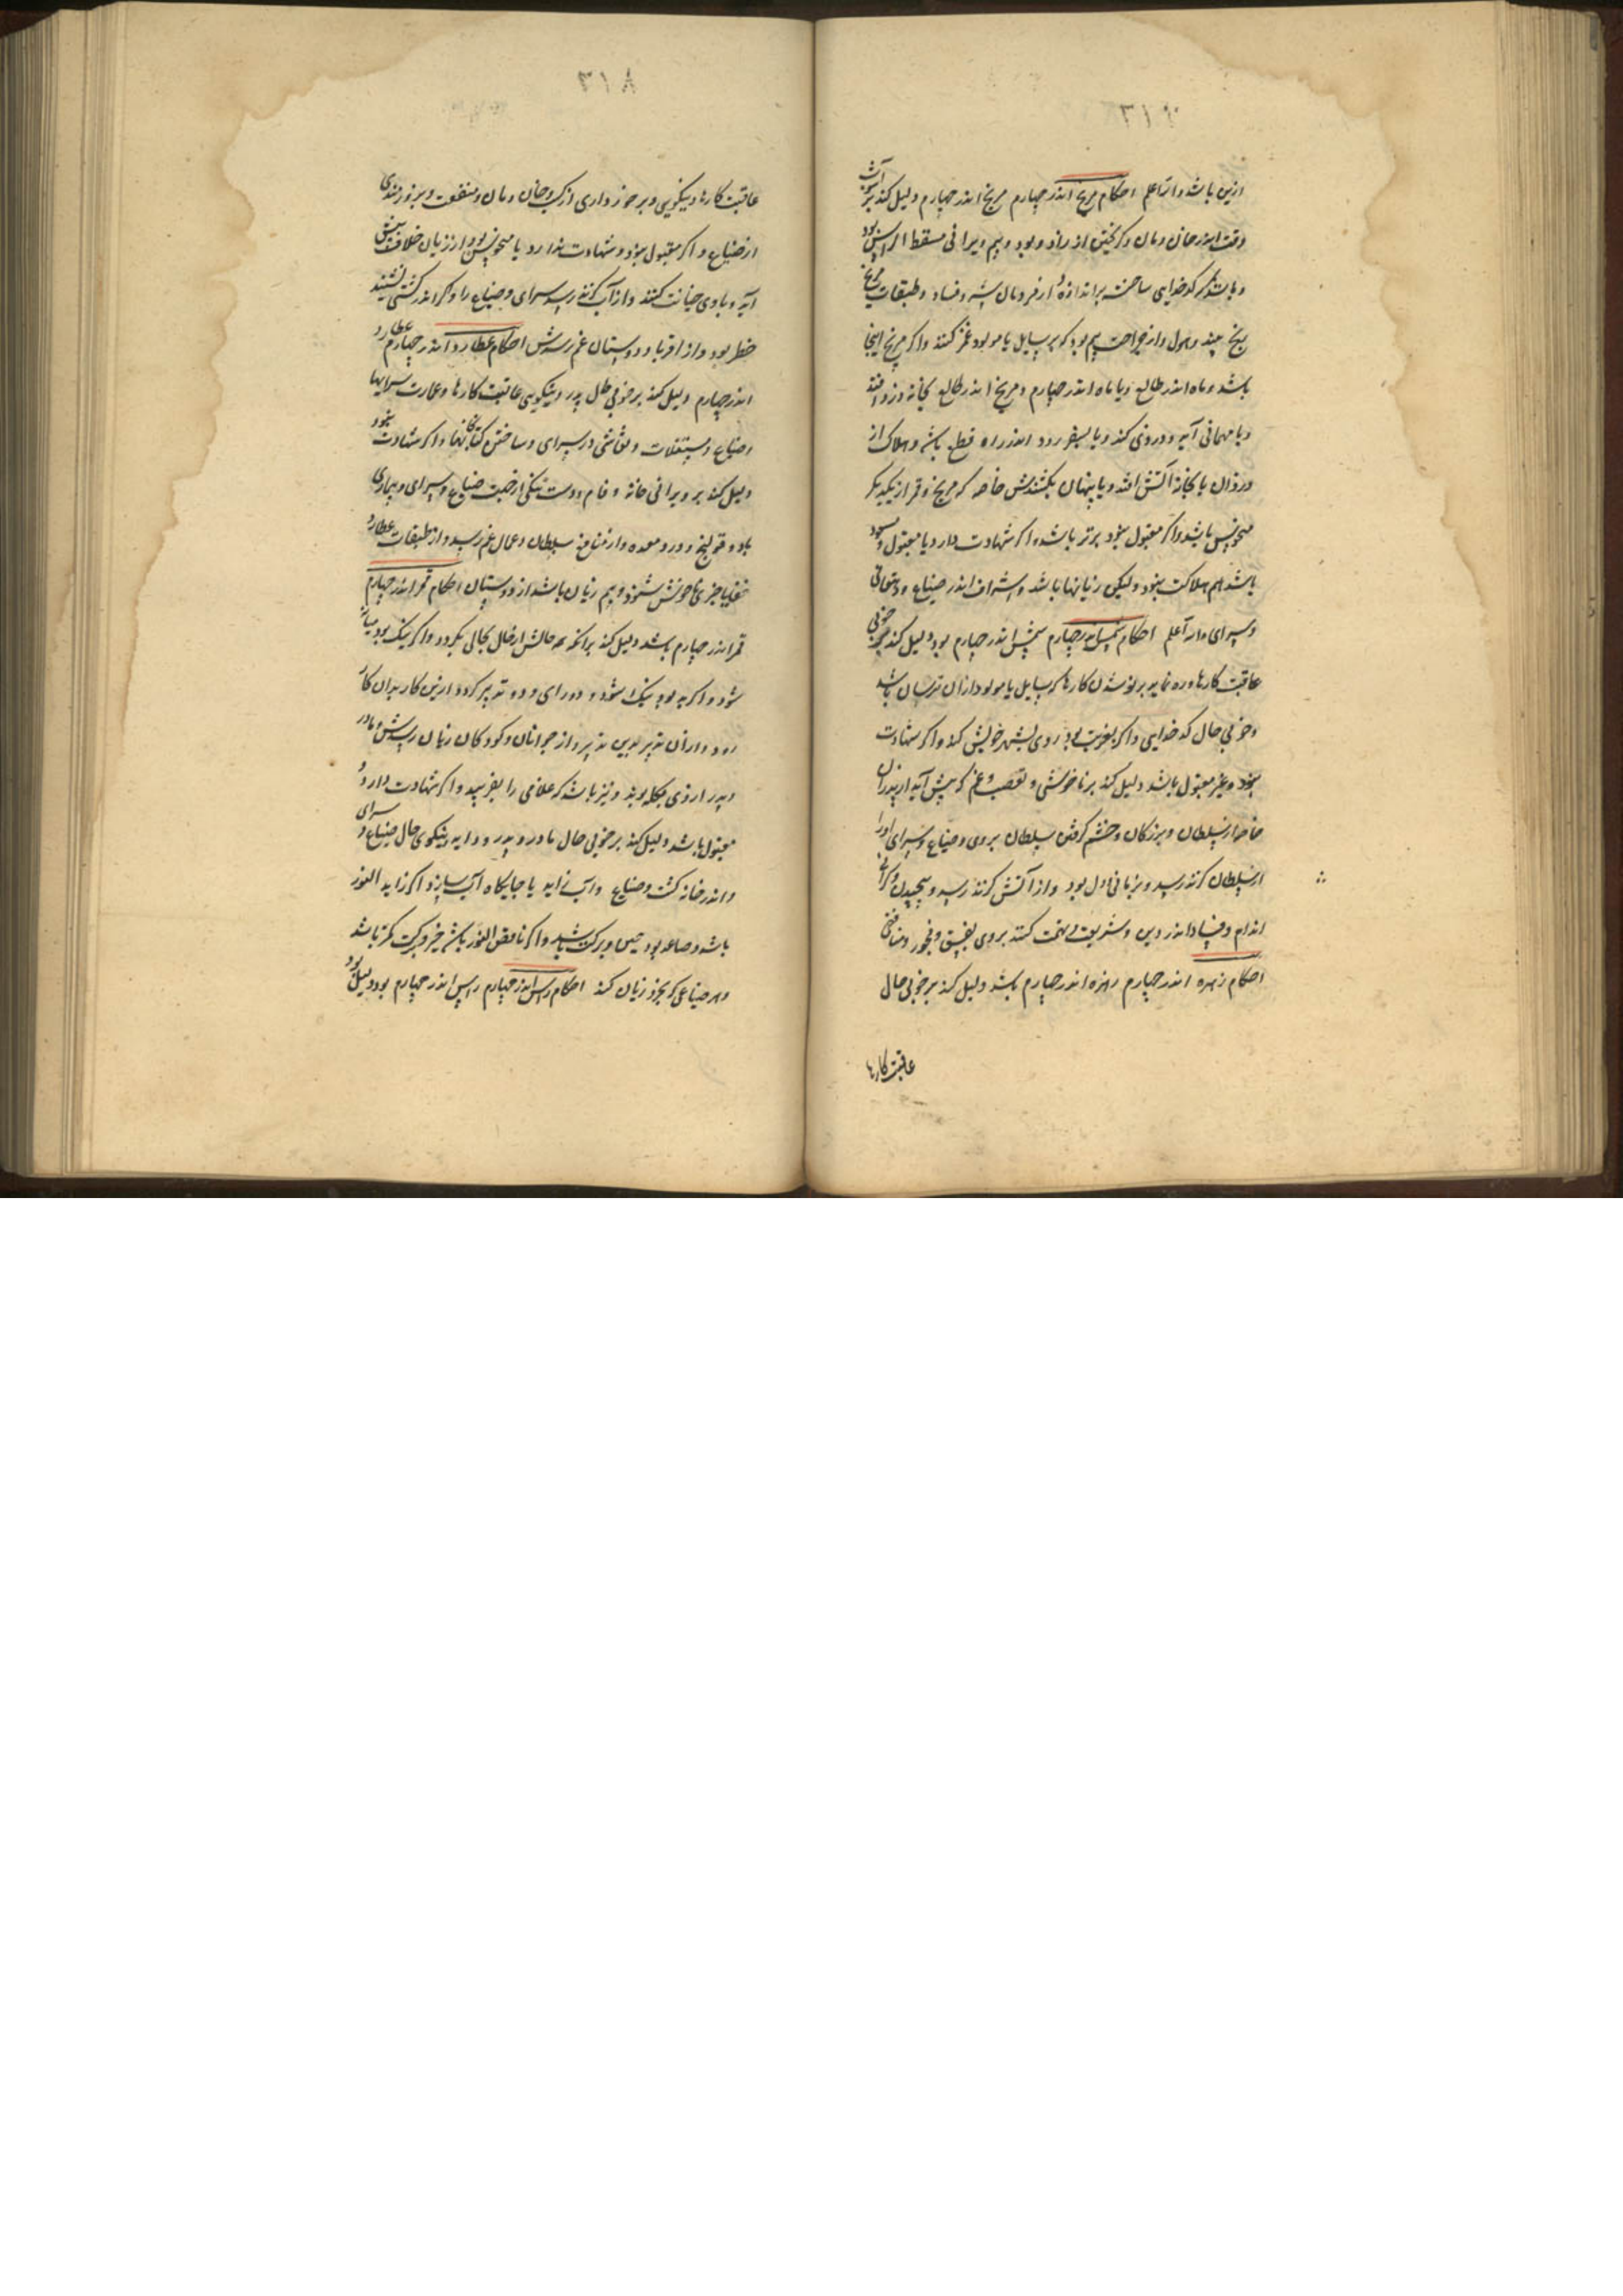 ازین باشد والله اعلم احکام مریخ اندر چهارم مریخ اندر چهارم دلیل کند بر
وقت اندر خان و مان و کریختن از زاد و بود و بیم ویرانی مسقط الراس بود
و باشد که کدخدایی ساخته براندازد از فرومان و فساد و طبقات مریخ
رنج بیند و هول و از جراحت بیم بود که بر سایل یا مولود غمز کنند و اکر مریخ اینجا
باشد و ماه اندر طالع و یا ماه اندر چهارم و مریخ اندر طالع بخانه دزد افتد
و یا مهمانی آید و دزدی کند و یا بسفر رود اندر راه قطع باشد و هلاک از
دزدان یا بخانه آتش افتد و یا پنهان بکشندش خاصه که مریخ و قمر از یکدیکر
منحوس باشد و اکر مقبول بود برتر باشد و اکر شهادت دارد یا مقبول و مسعود
باشد هم هلاکت نبود ولیکن زیانها باشد و اندر ضیاع و دهقانی
و سرای والله اعلم احکام شمس اندر چهارم شمس اندر چهارم بود دلیل کند بر خوبی
عاقبت کارها و ره نماید بر کارها که سایل یا مولود از ان ترسان باشد
و خوبی حال کدخدایی و اکر بغربت بود روی بشهر خویش کند و اکر شهادت
نبود و غیر مقبول باشد دلیل کند بر ناخوشی و تعصب و غم که پیش آید از پدران
خاصه از سلطان و بزرکان و خشم کرفتن سلطان بر وی و ضیاع و سرای او را
از سلطان کزند رسد و بود و از آتش کزند رسد و پیچیدن و کرانی
اندام و فساد اندر دین و شریعت و تهمت کنند بر وی بفسق و فجور و منافقی
احکام زهره اندر چهارم زهره اندر چهارم باشد دلیل کند بر خوبی حال
عاقبت کارها
٣١٨
عاقبت کارها و نیکویی و برخورداری از خان و مان و منفعت و
از ضیاع و اکر مقبول نبود و شهادت ندارد یا منحوس بود از زنان خلاف پیش
آید و با وی خیانت کنند و از آب کزند رسد سرای و ضیاع را و اکر اندر کشتی نشیند
خطر بود و از اقربا و دوستان غم رسدش احکام عطارد اندر چهارم عطارد
اندر چهارم دلیل کند بر خوبی حال پدر و نیکویی عاقبت کارها و عمارت سرایها
و ضیاع و مستغلات و نقاشی در سرای و ساختن کتابخانها و اکر شهادت نبود
دلیل کند بر ویرانی خانه و وام و دست تنکی از جهت ضیاع و سرای و بیماری
باد و قولنج و درد معده و از سلطان و عمال غم رسد و از طبقات عطارد
ناخوش شنود و بیم زیان باشد از دوستان احکام قمر اندر چهارم
قمر اندر چهارم باشد دلیل کند بر آنکه حالش از حال بحالی بکردد و اکر نیک بود میانه
شود و اکر بد بود نیک شود و دو رای و دو تدبیر کردد ازین کار بدان کار
رود و از ان تدبیر بدین تدبیر و از جوانان و کودکان زیان رسدش و مادر
و پدر از وی کله و نیز باشد که غلامی را بفریبد و اکر شهادت دارد و
مقبول باشد دلیل کند بر خوبی حال مادر و پدر و دایه و نیکوی حال ضیاع و سرای
و اندر خانه کشت و ضیاع و آب زاید یا جایکاه آب سازد و اکر زاید النور
باشد و صاعد بود و برکت باشد و اکر ناقص النور باشد خیر و برکت کمتر باشد
و هر ضیاعی که بخرد زیان کند احکام راس اندر چهارم راس اندر چهارم بود دلیل بود